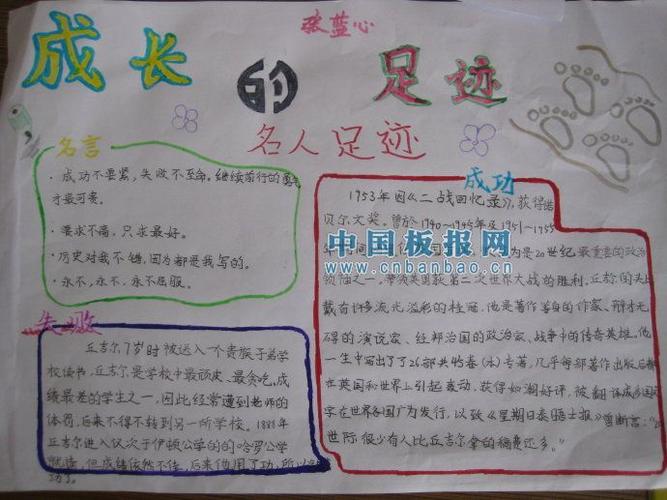 张蓝心
成长的足迹
名人足迹
名言
·成功不要紧，失败不至命，继续前行的勇气
才最可贵。
·要求不高，只求最好。
·历史对我不错，因为都是我写的。
·永不，永不，永不屈服。
失败
丘吉尔7岁时被送入一个贵族子弟学
校读书，丘吉尔是学校中最顽皮、最贪吃，成
绩最差的学生之一，因此经常遭到老师的
体罚，后来不得不转到另一所学校。1881年
丘吉尔进入仅次于伊顿公学的的哈罗公学
就读，但成绩依然不佳，后来他用了功，所以
成功
1953年因《二战回忆录》，获得诺
贝尔文奖。曾於1940～1945年及1951～1955
年 为是20世纪最重要的政治
领袖之一，带领英国获第二次世界大战的胜利，丘吉尔的头上
戴有许多流光溢彩的桂冠，他是著作等身的作家、辩才无
碍的演说家、经邦治国的政治家、战争中的传奇英雄。他
一生中写出了了26部共45卷（本）专著，几乎每部著作出版后都
在英国和世界上引起轰动，获得如潮好评，被翻译成多国
字在世界各国广为发行，以致《星期日泰晤士报》曾断言：“20
世际，很少有人比丘吉尔拿的稿费还多。”
中国板报网
www.cnbanbao.cn